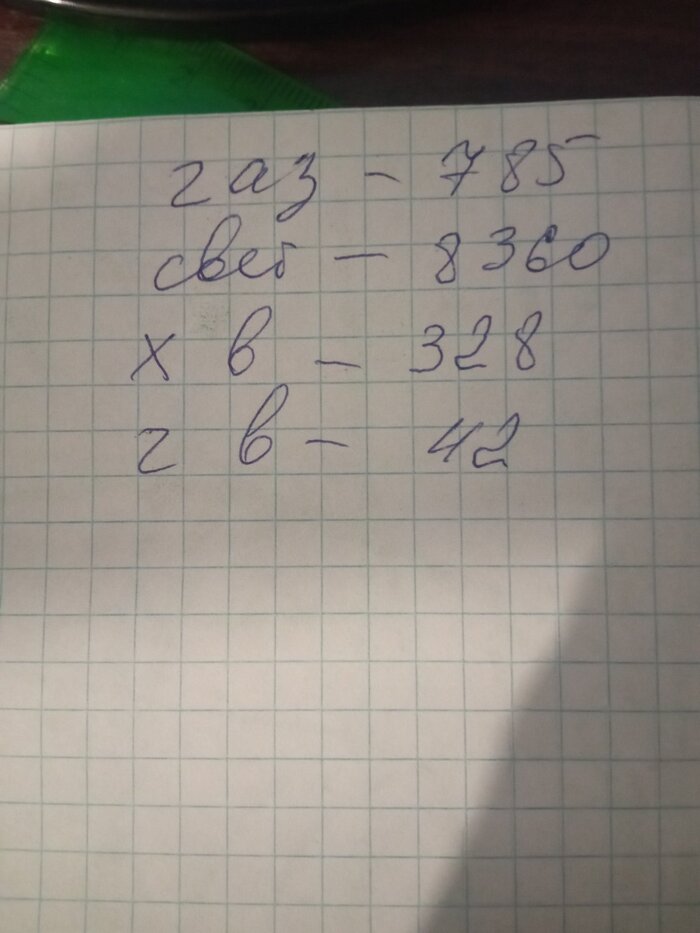 газ - 785
свет - 8360
х в - 328
г в - 42